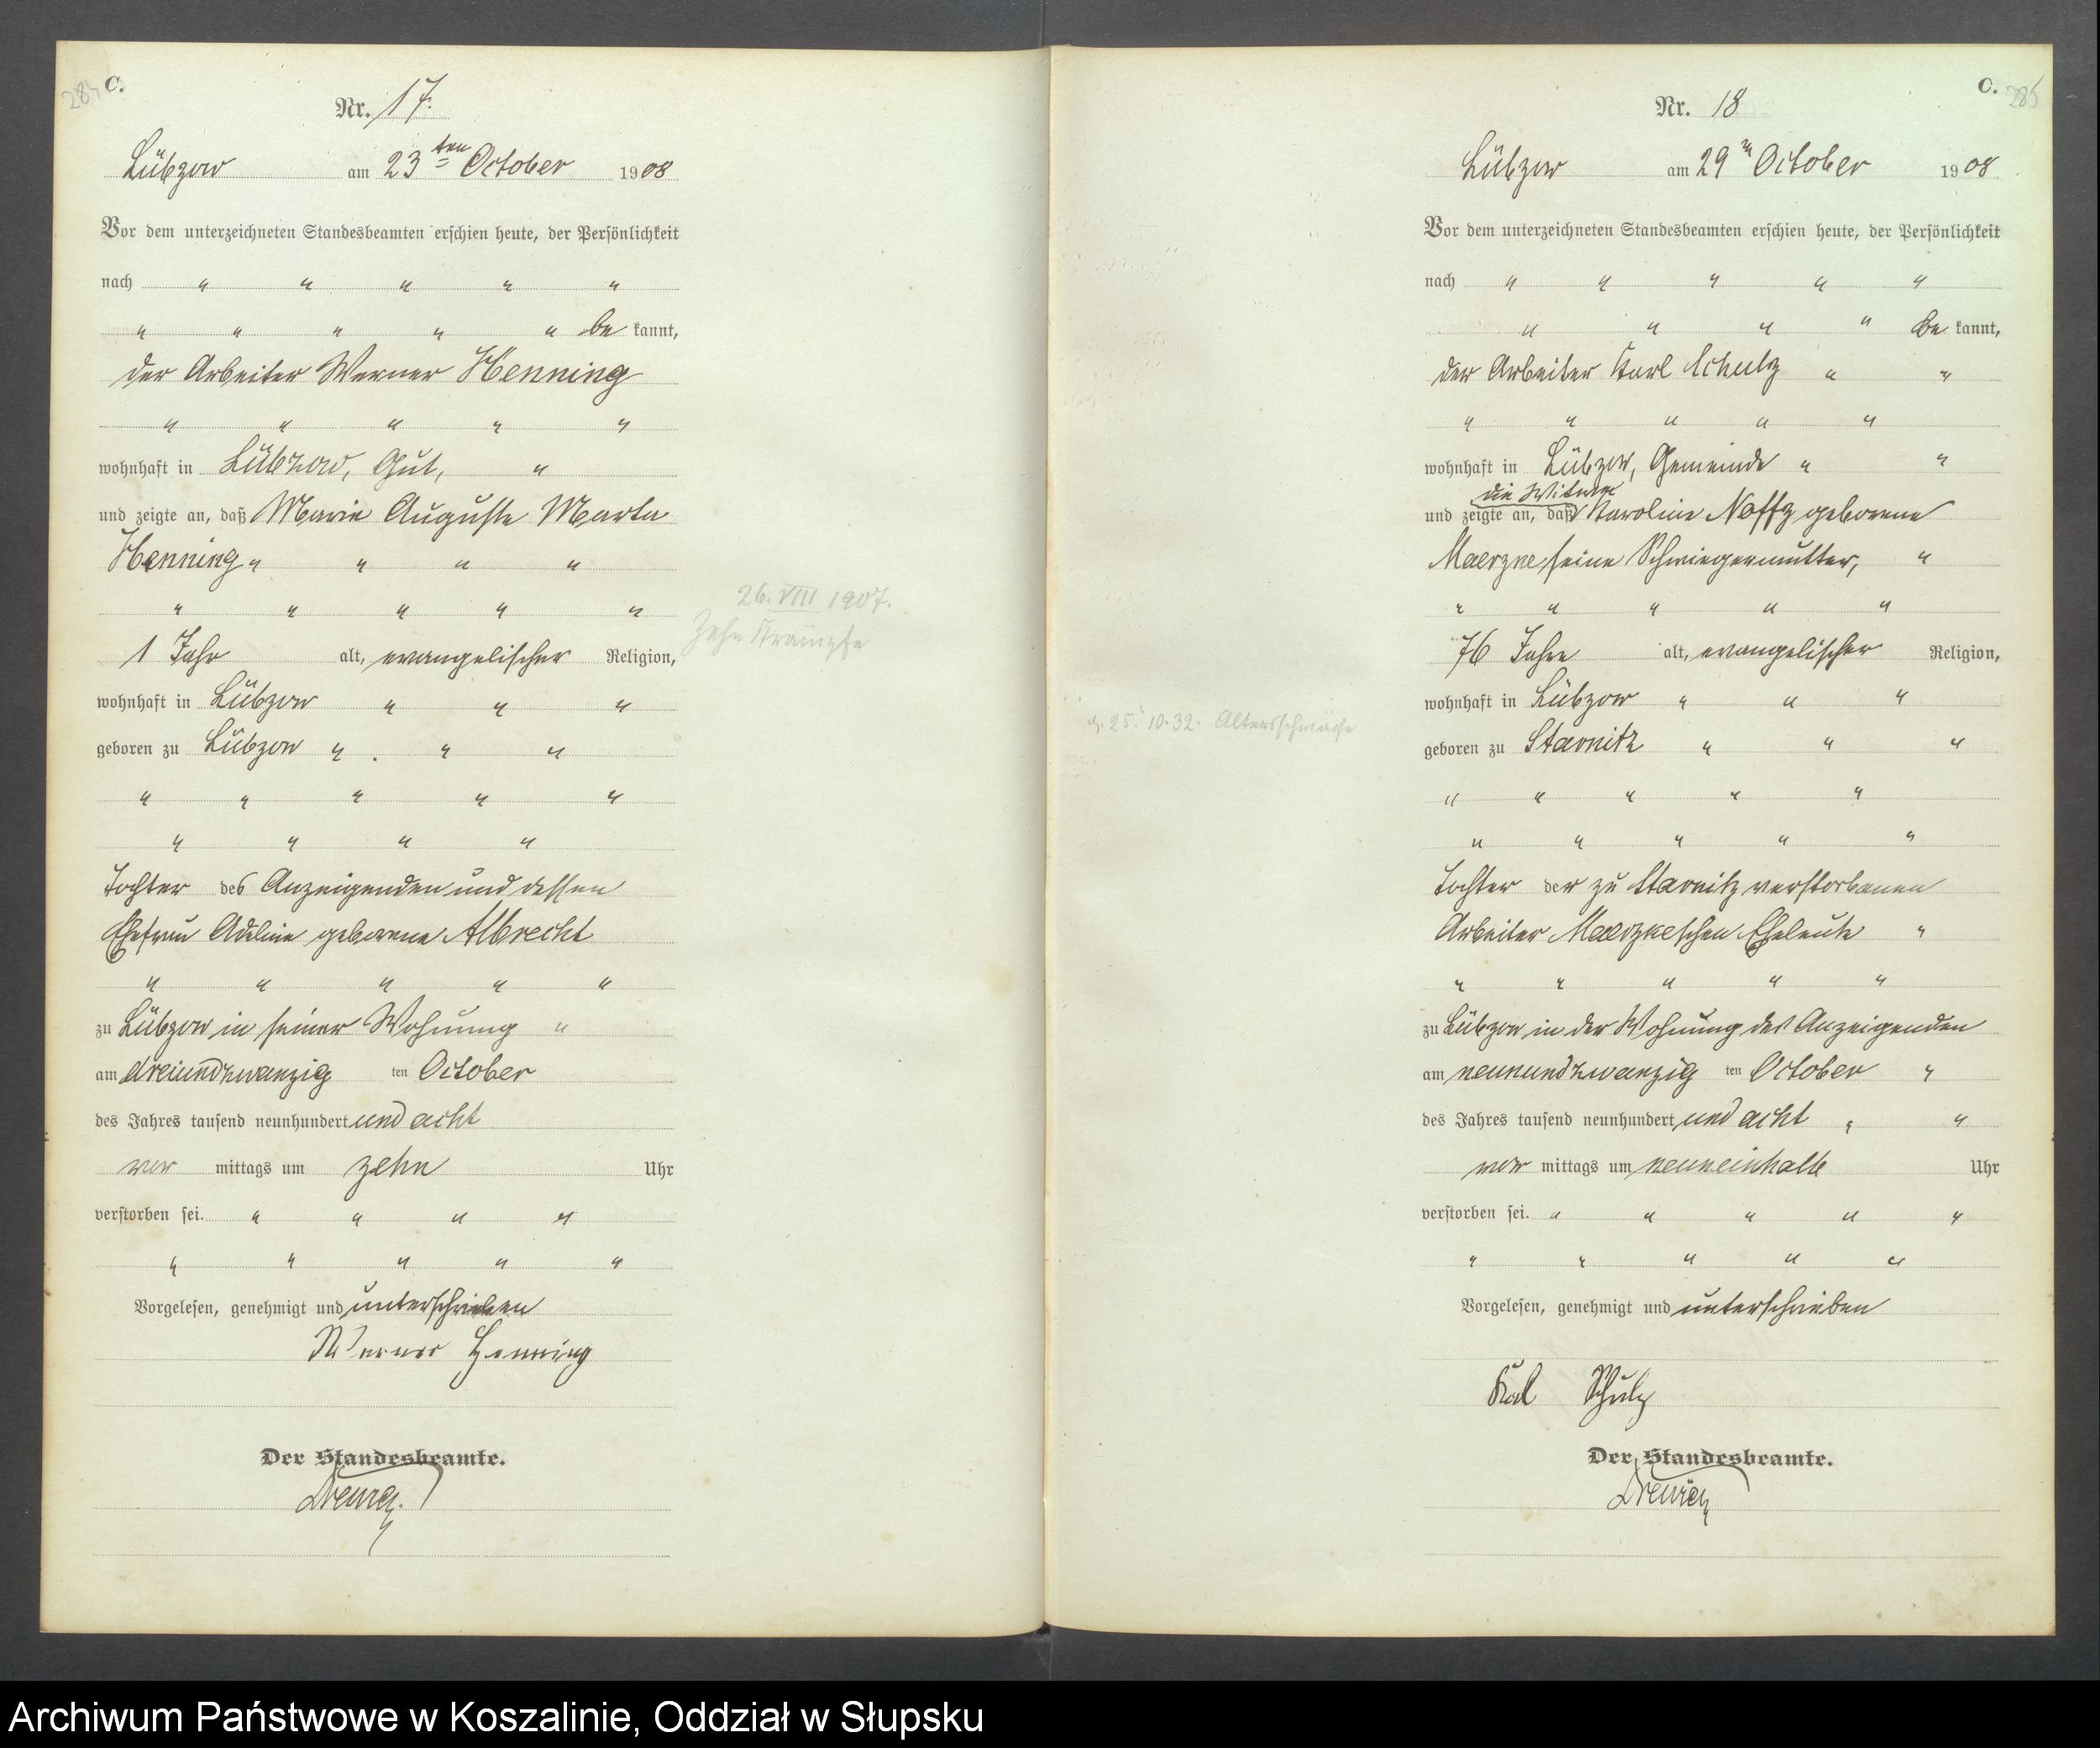 284
C.
Nr. 17.
Lübzow am 23ten October 1908
Vor dem unterzeichneten Standesbeamten erschien heute, der Persönlichkeit
nach " " " " "
" " " " " be kannt,
der Arbeiter Werner Henning
" " " " "
wohnhaft in Lübzow, Gut, "
und zeigte an, daß Marie Auguste Marta
Henning " " " "
" " " " "
1 Jahr alt, evangelischer Religion,
wohnhaft in Lübzow " " "
geboren zu Lübzow " . " "
" " " " "
" " " "
Tochter des Anzeigenden und dessen
Ehefrau Adeline geborene Albrecht
" " " " "
zu Lübzow in seiner Wohnung "
am dreiundzwanzig ten October
des Jahres tausend neunhundert und acht
vor mittags um zehn Uhr
verstorben sei. " " " "
" " " " "
Vorgelesen, genehmigt und unterschrieben
Werner Henning
Der Standesbeamte.
26. VIII 1907.
Krämpfe
C.
285
Nr. 18
Lübzow am 29n October 1908
Vor dem unterzeichneten Standesbeamten erschien heute, der Persönlichkeit
nach " " " " "
" " " " be kannt,
der Arbeiter Karl Schulz " "
" " " " "
wohnhaft in Lübzow, Gemeinde " "
die Witwe
und zeigte an, daß Karoline Noffz geborene
Maerzke seine Schwiegermutter, "
" " " " "
76 Jahre alt, evangelischer Religion,
wohnhaft in Lübzow " " "
geboren zu Starnitz " " "
" " " " "
" " " " "
Tochter der zu Starnitz verstorbenen
Arbeiter Maerzkeschen Eheleute "
" " " " "
zu Lübzow in der Wohnung des Anzeigenden
am neunundzwanzig ten October "
des Jahres tausend neunhundert und acht " "
vor mittags um neuneinhalb Uhr
verstorben sei. " " " " "
" " " " "
Vorgelesen, genehmigt und unterschrieben
Karl Schulz
Der Standesbeamte.
25. 10. 32. Altersschwäche
Archiwum Państwowe w Koszalinie, Oddział w Słupsku